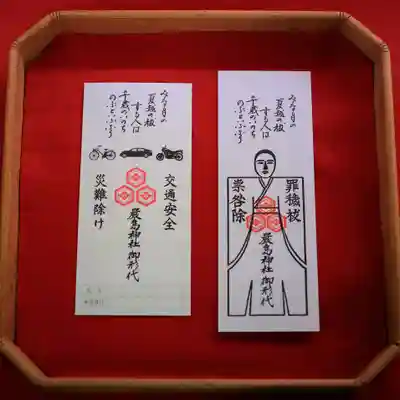 みな月の
夏越の祓
する人は
千歳のいのち
のぶといふなり
罪穢祓
嚴島神社御形代
祟咎除
みな月の
夏越の祓
する人は
千歳のいのち
のぶといふなり
交通安全
嚴島神社御形代
災難除け